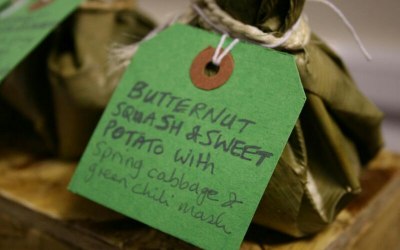 BUTTERNUT
SQUASH & SWEET
POTATO WITH
Spring cabbage &
green chili mash